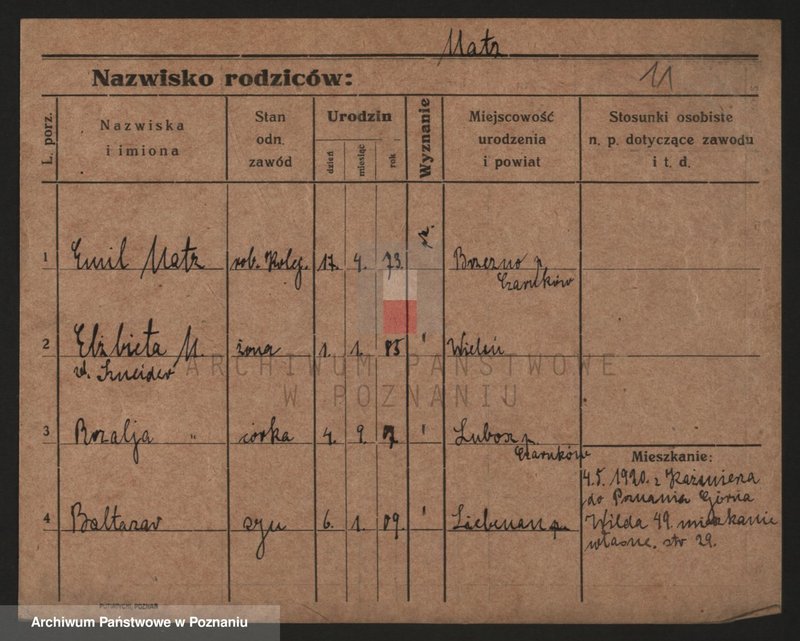 Matz
11
Nazwisko rodziców:
L. porz.
Nazwiska
i imiona
Stan
odn.
zawód
Urodzin
dzień
miesiąc
rok
Wyznanie
Miejscowość
urodzenia
i powiat
Stosunki osobiste
n. p. dotyczące zawodu
i t. d.
1 Emil Matz rob. Kolej. 17. 4. 73. Brzezno p.
Czarnków
2 Elżbieta M. żona 1. 1. 85 Wieleń
Sznejder
3 Rozalja " córka 4. 9. 7 Lubosz p.
Czarnków
4 Baltazar syn 6. 1. 09.
Mieszkanie:
4.5. 1920. z Kaźmierza
do Poznania Górna
Wilda 49. mieszkanie
własne. str 29.
ARCHIWUM PAŃSTWOWE
W POZNANIU
PUTIATYCKI, POZNAŃ
Archiwum Państwowe w Poznaniu